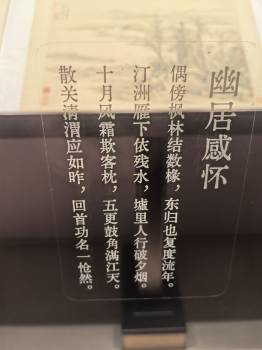 幽居感怀
偶傍枫林结数椽，东归也复度流年。
汀洲雁下依残水，墟里人行破夕烟。
十月风霜欺客枕，五更鼓角满江天。
散关清渭应如昨，回首功名一怆然。